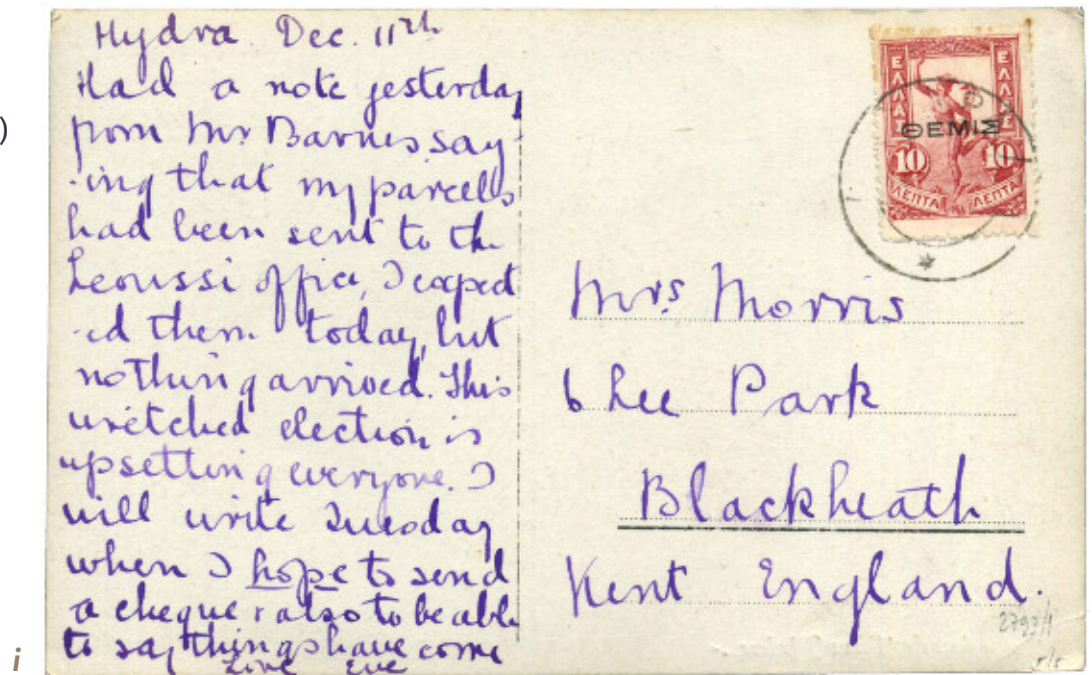 Hydra Dec. 11th
Had a note yesterday
from Mr Barnes say-
-ing that my parcels
had been sent to the
Leoussi office, I expect
-ed them today, but
nothing arrived. This
wretched election is
upsetting everyone. I
will write Tuesday
when I hope to send
a cheque & also to be able
to say things have come
Eve
ΕΛΛΑΣ
ΕΛΛΑΣ
ΘΕΜΙΣ
10 10
ΛΕΠΤΑ ΛΕΠΤΑ
Mrs Morris
6 Lee Park
Blackheath
Kent England.
)
i